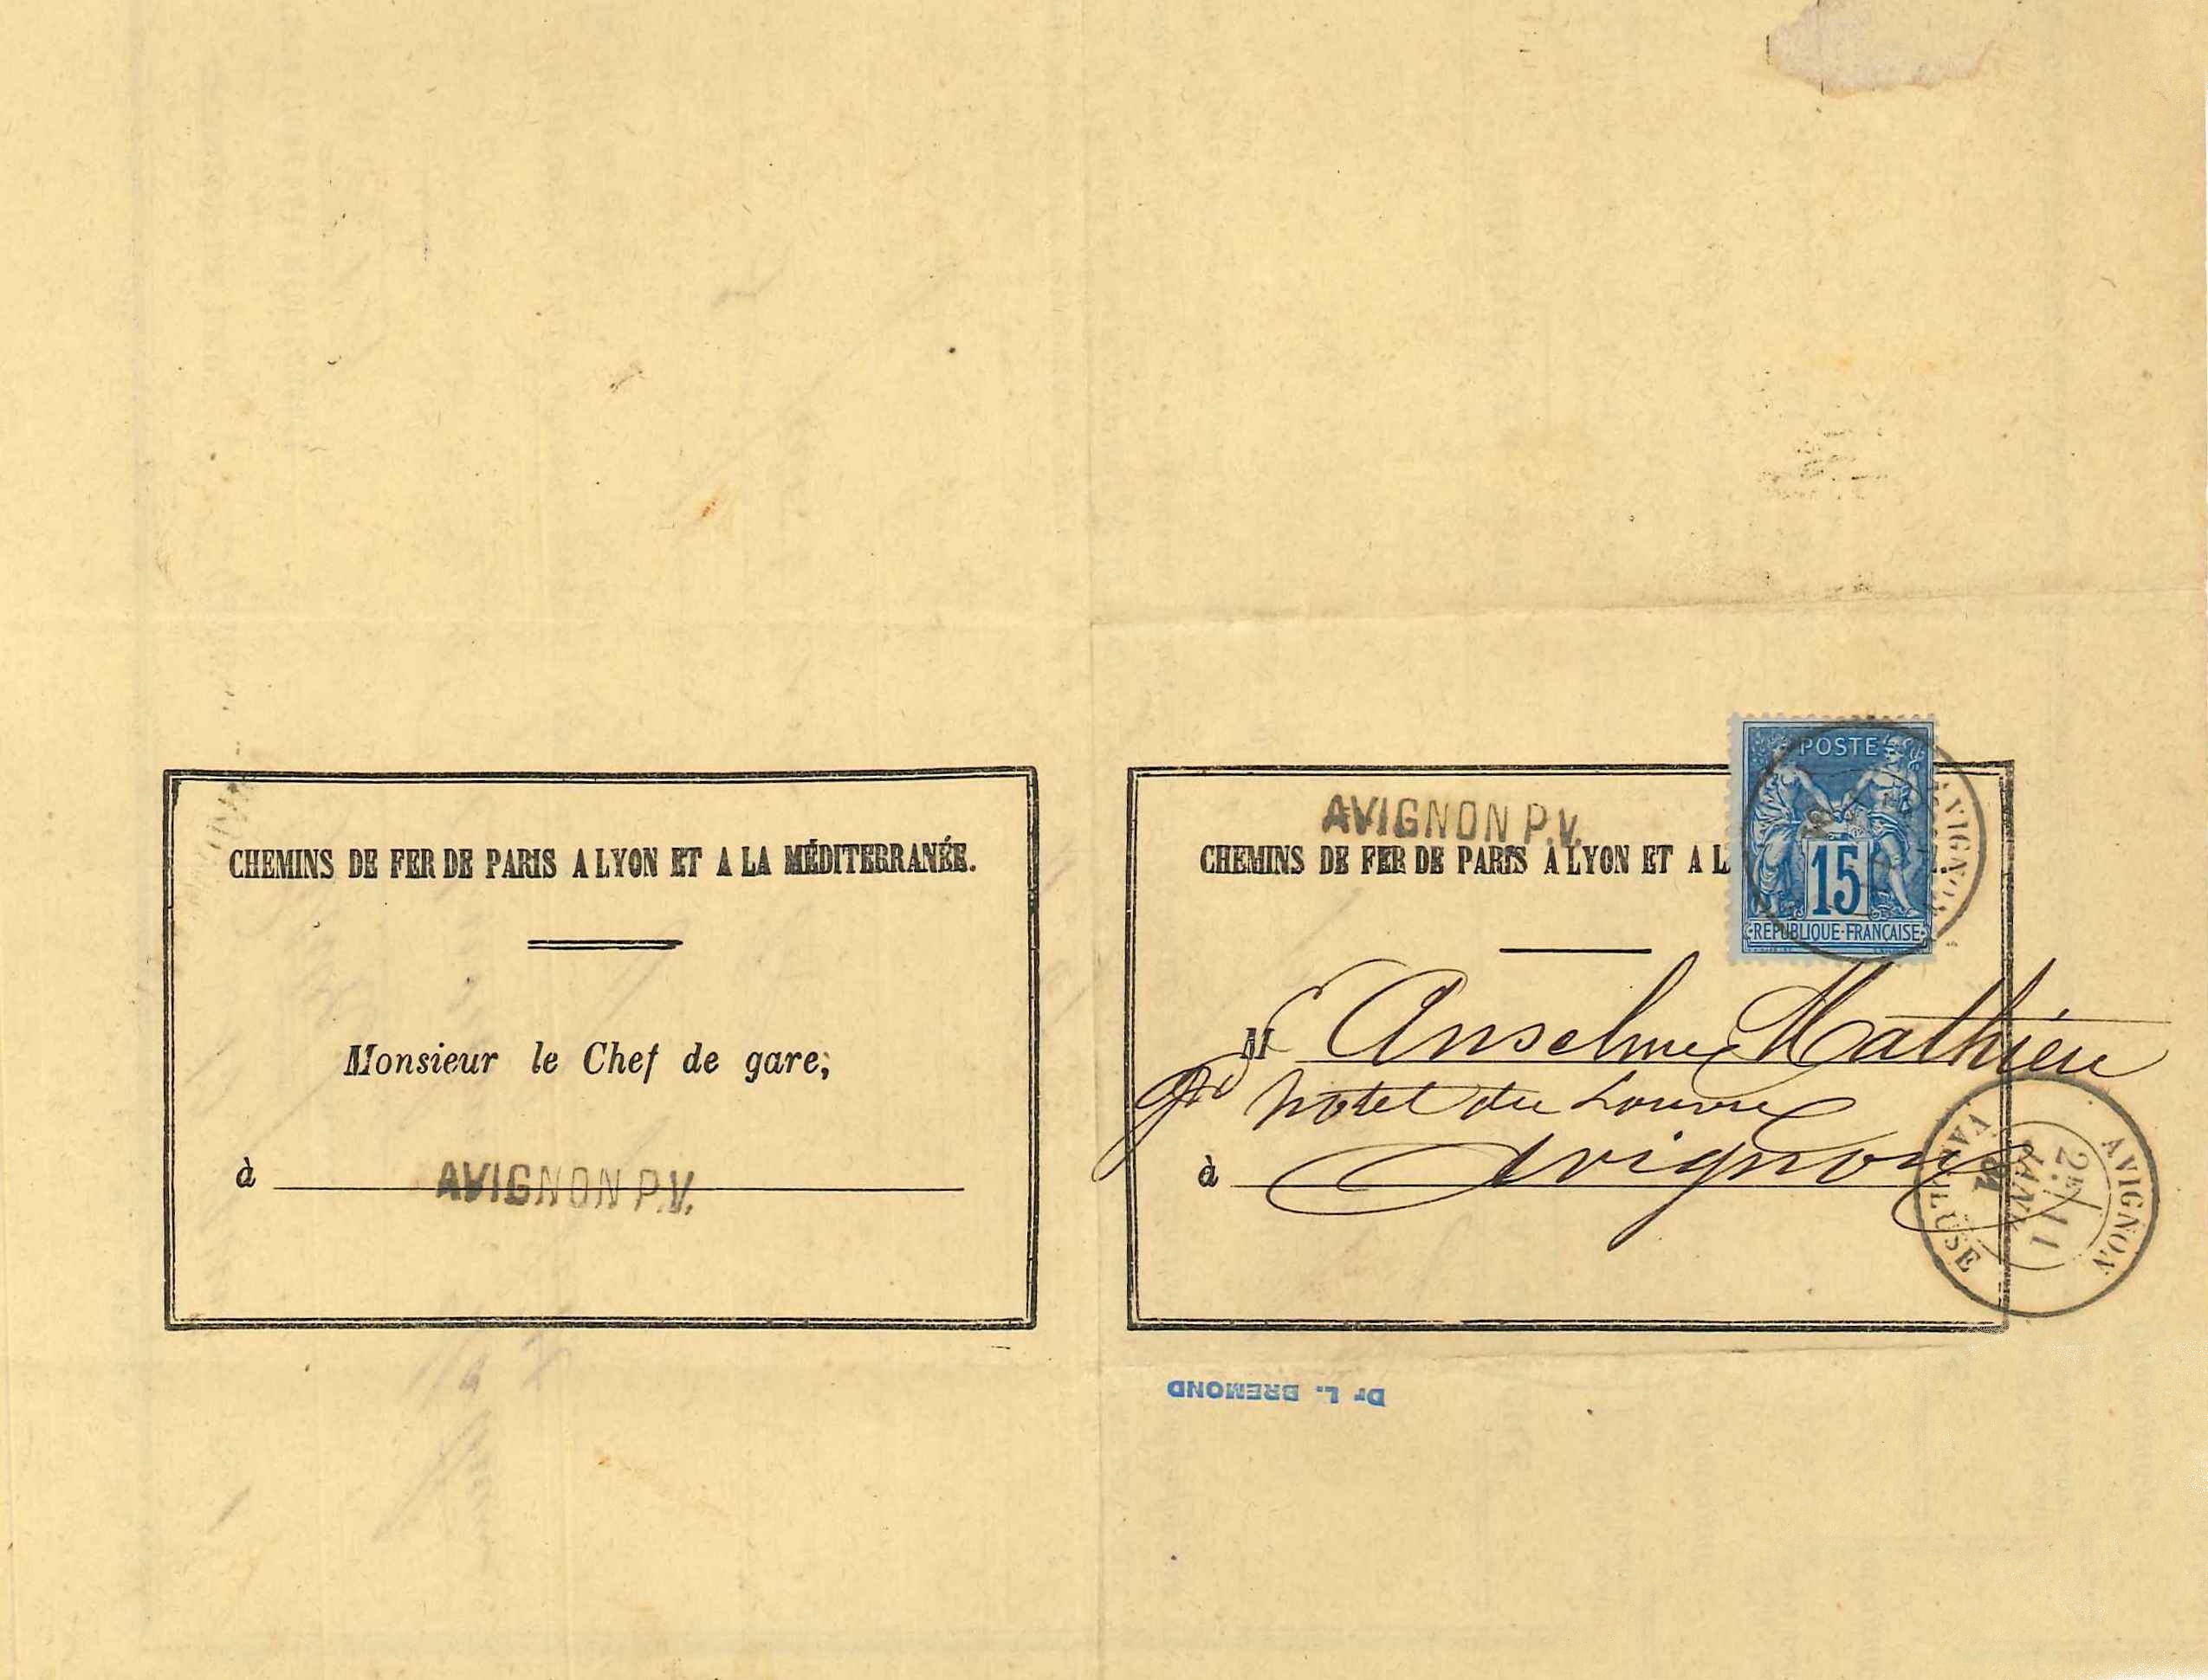 CHEMINS DE FER DE PARIS A LYON ET A LA MÉDITERRANÉE.
Monsieur le Chef de gare,
à AVIGNON P.V.
POSTE
15
REPUBLIQUE·FRANÇAISE
AVIGNON
AVIGNON P.V.
CHEMINS DE FER DE PARIS A LYON ET A L
M Anselme Mathieu
gd hotel du Louvre
à Avignon
AVIGNON
2E 11
JANV.
84
VAUCLUSE
Dr L. BREMOND